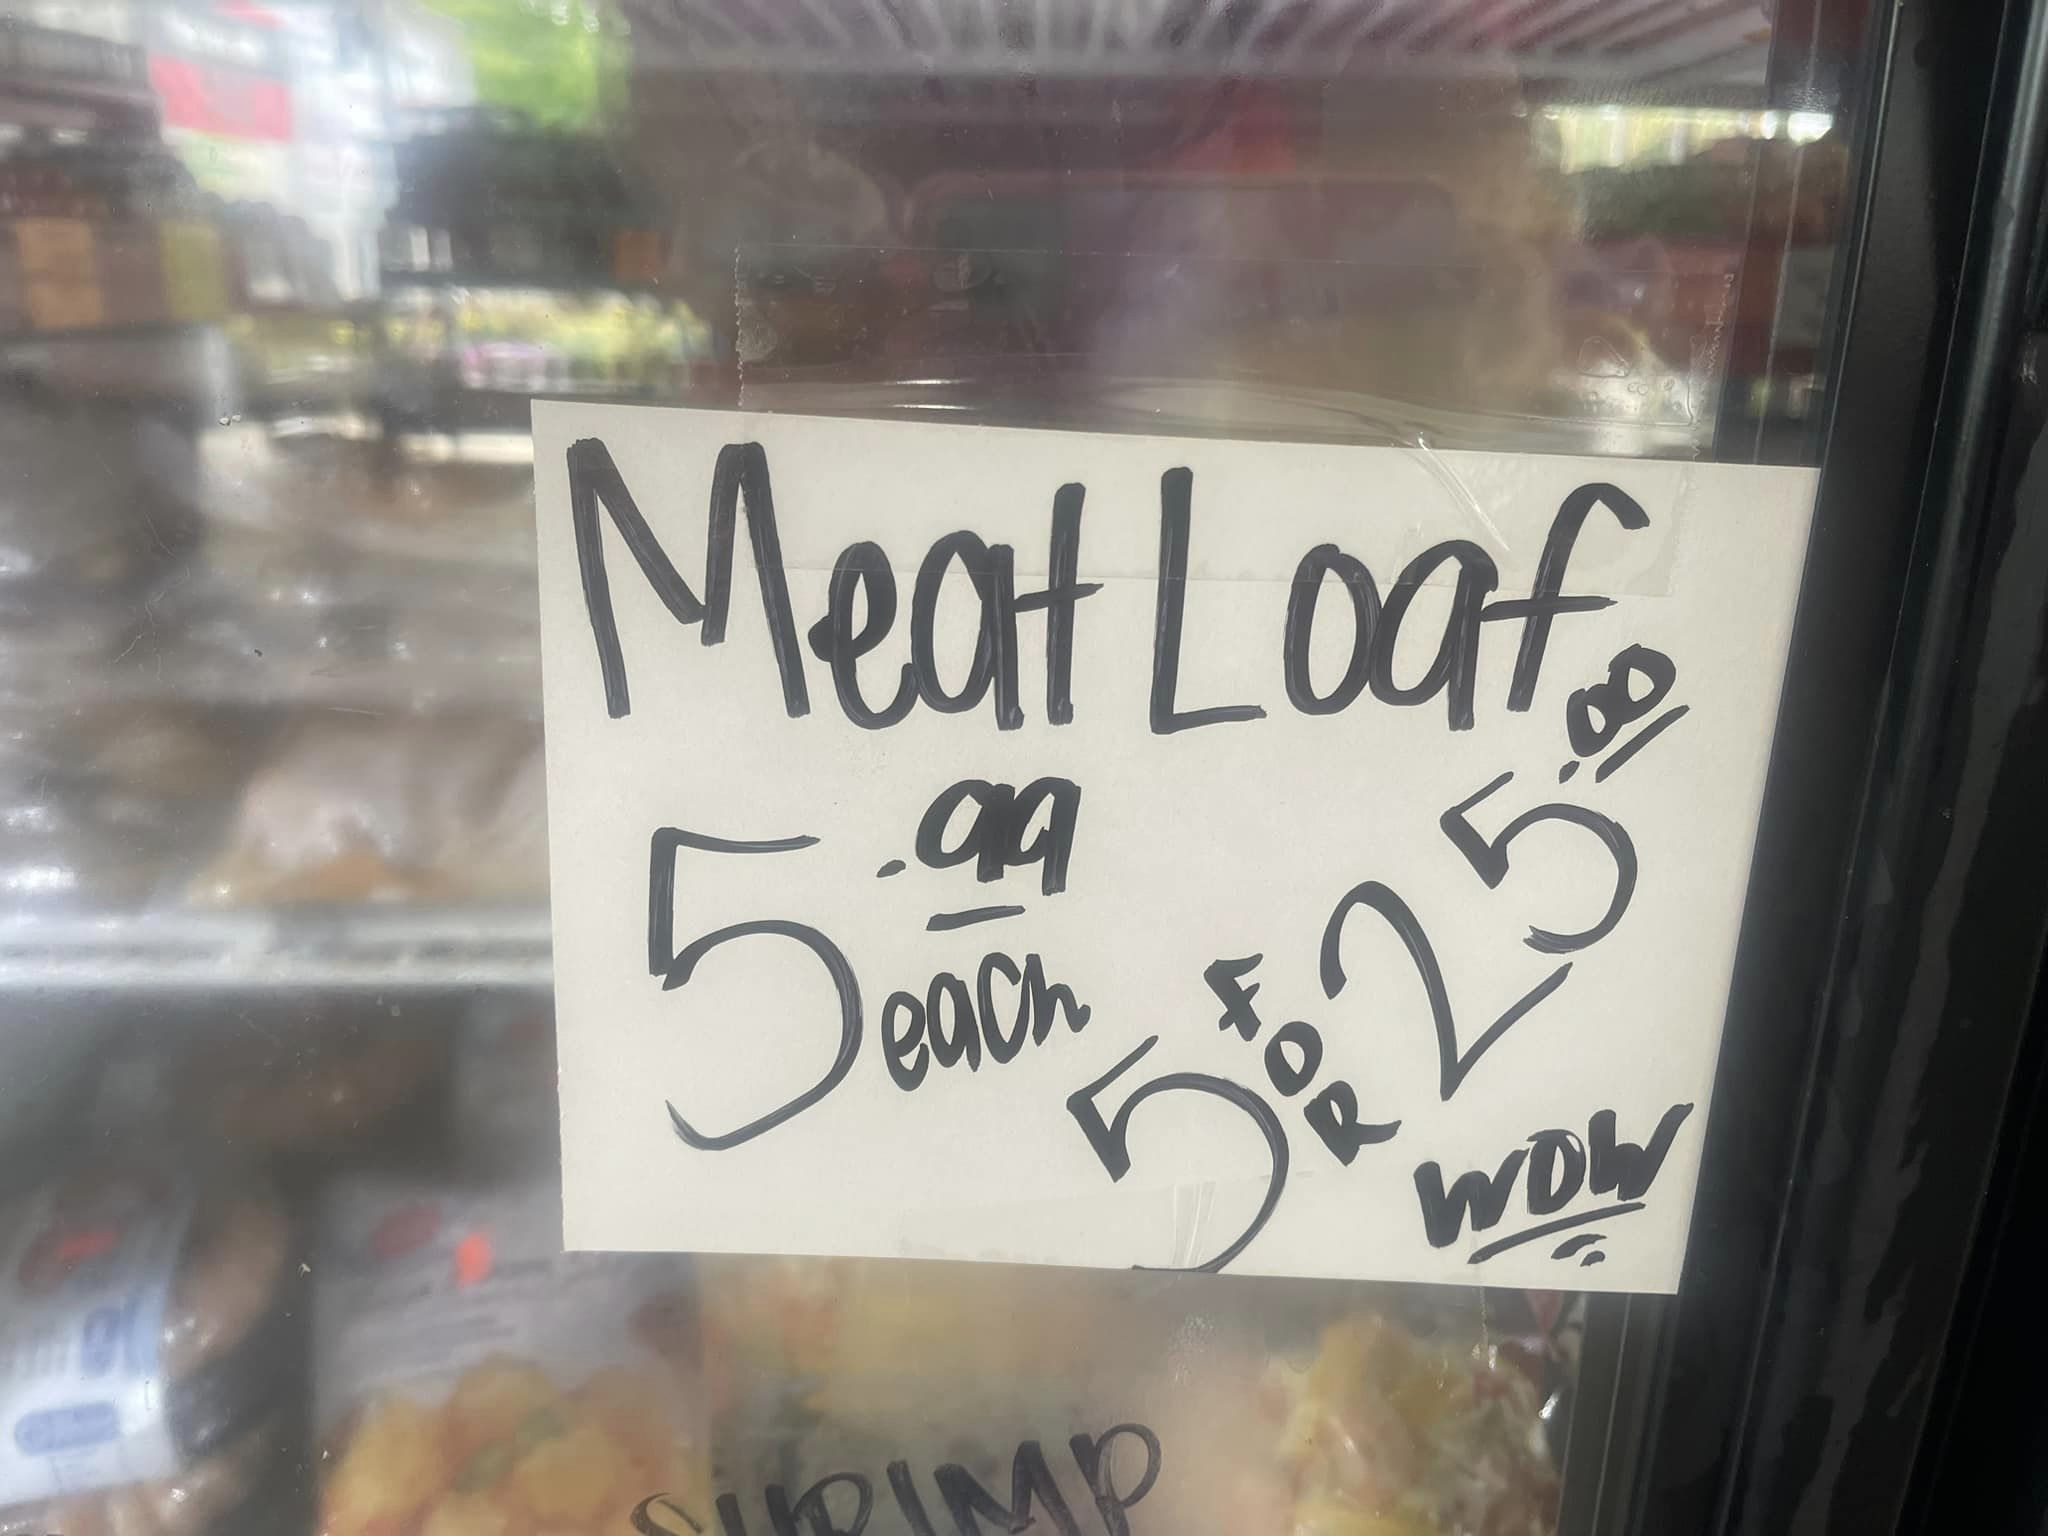 Meat Loaf
5.99 each
5 FOR 25.00
WOW
SHRIMP